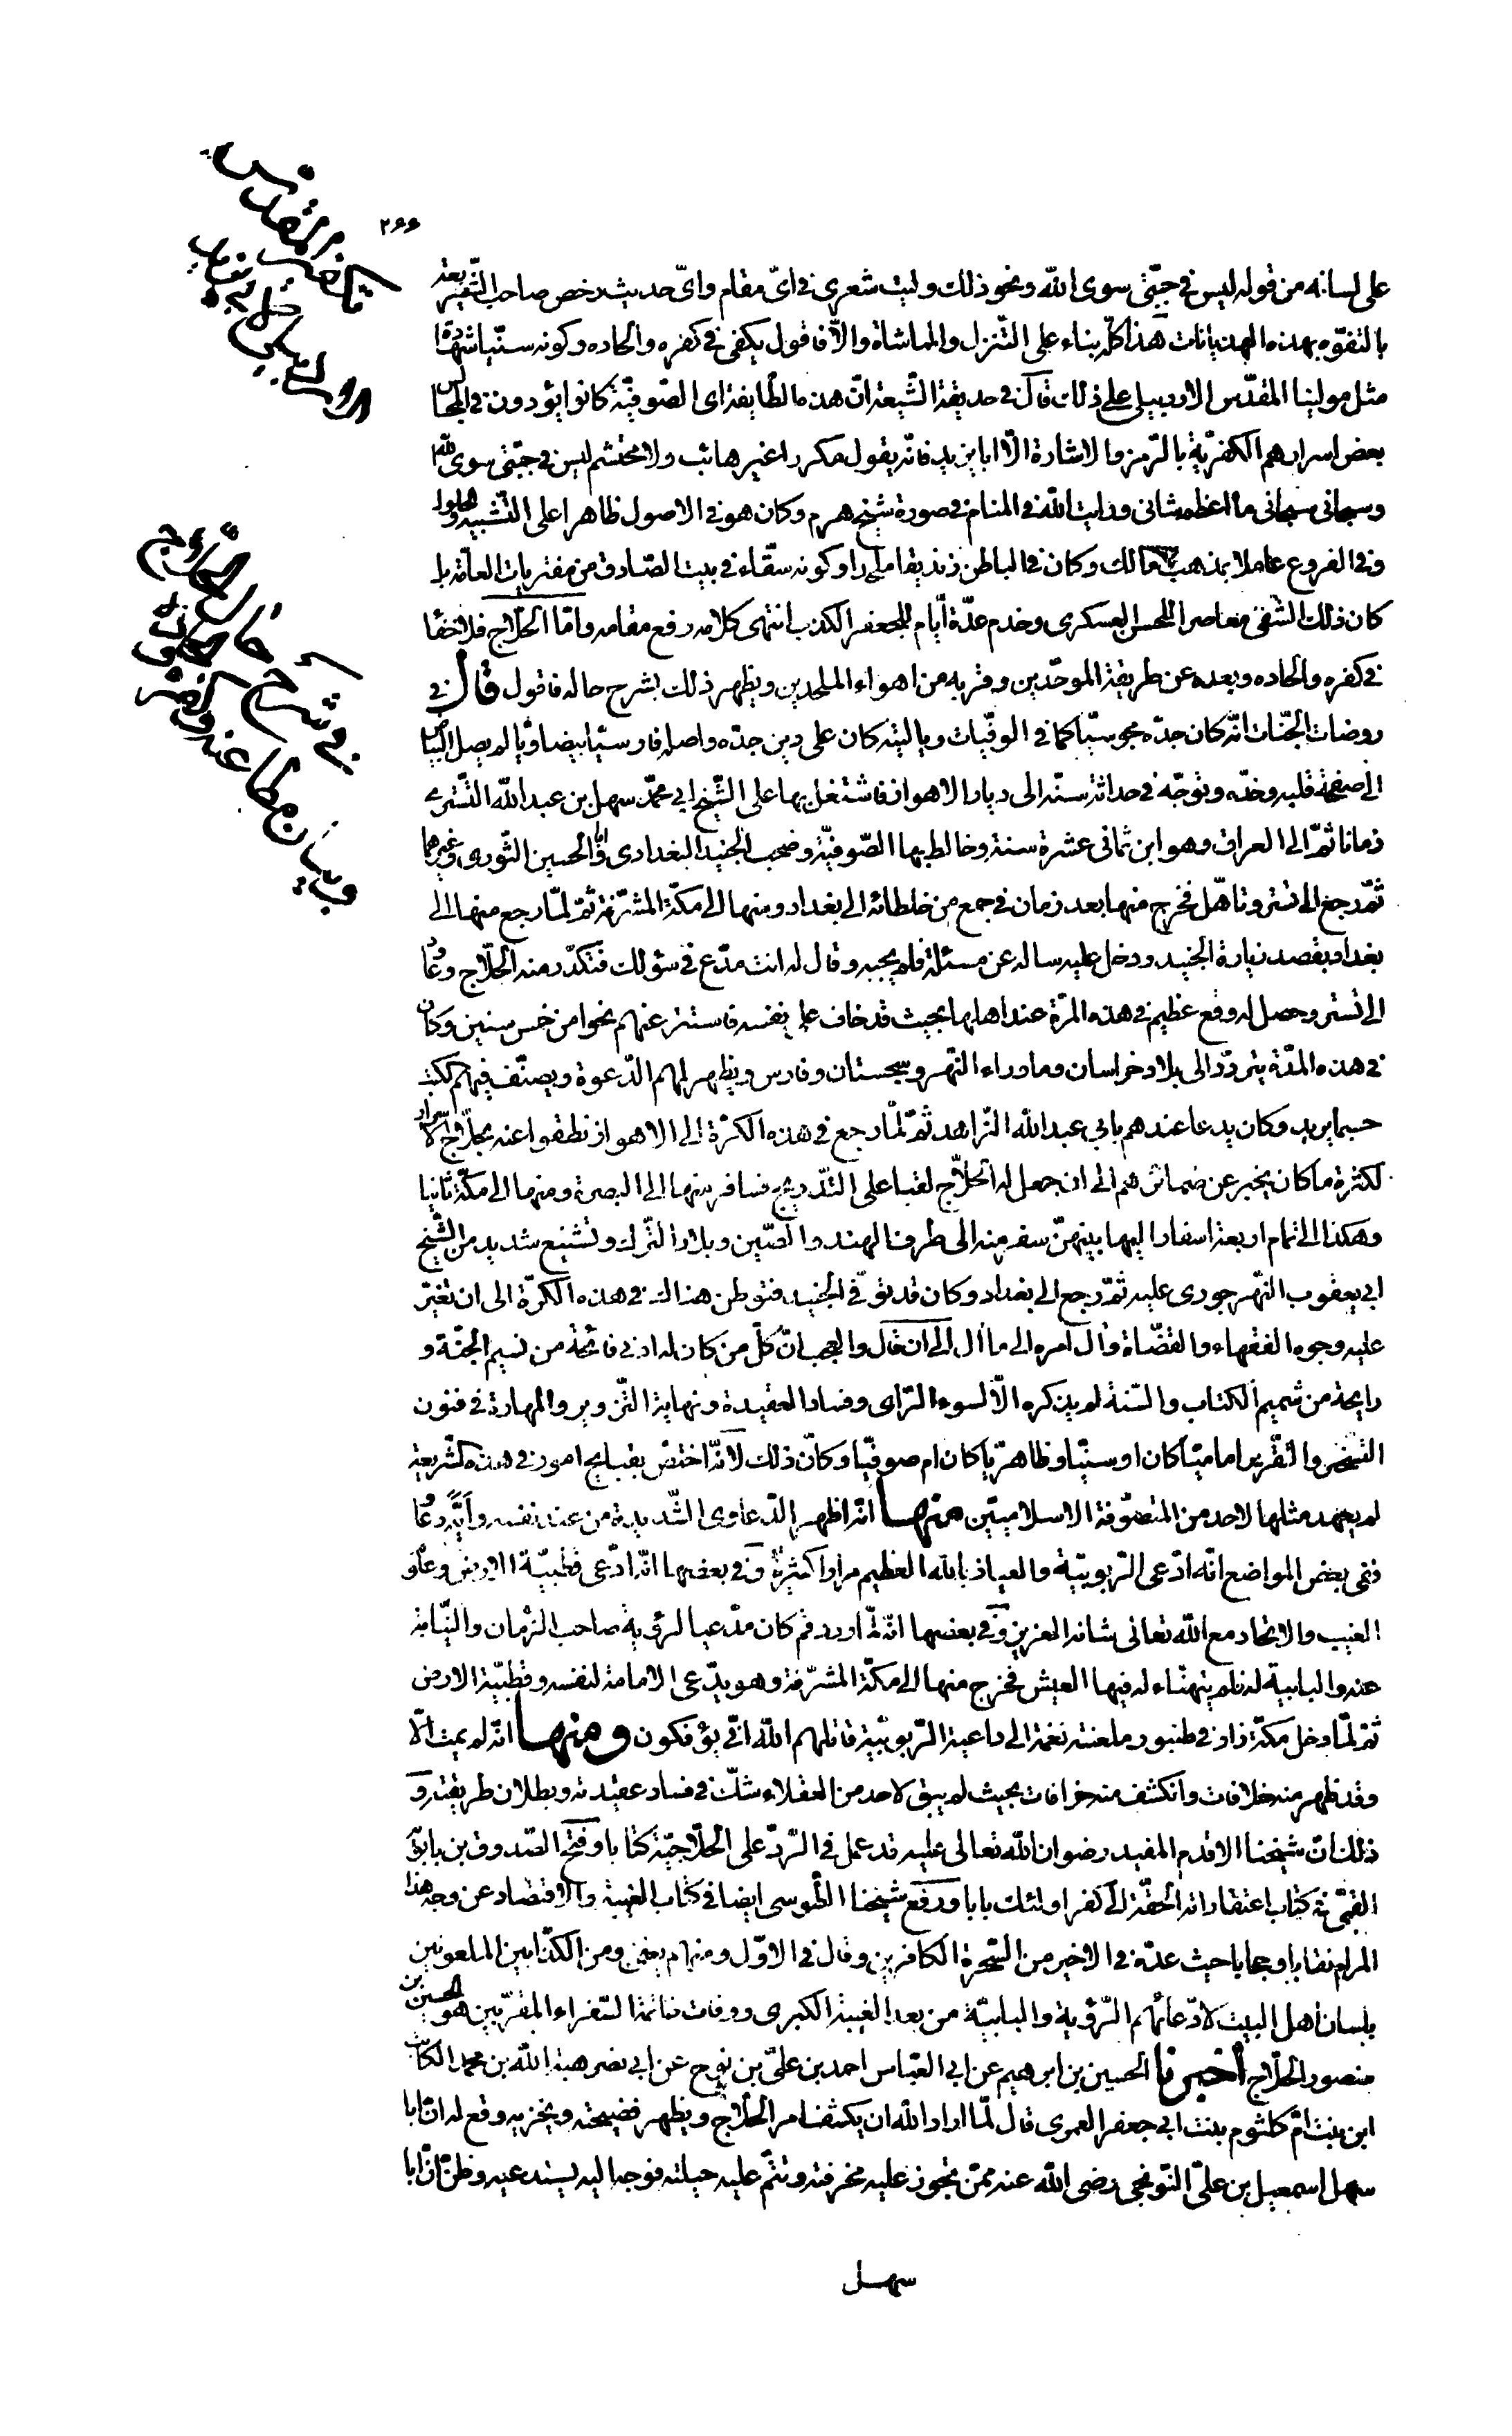 ٢٦٦
على لسانه من قوله ليس في جبّتى سوى اللّه ونحو ذلك وليت شعرى في اىّ مقام واىّ حديث رخص صاحب الشّريعة
بالتفوّه بهذه الهذيانات هذا كلّه بناء على التّنزل والمماشاة والّا فاقول يكفى في كفره والحاده وكونه سنّيا شهادة
مثل مولينا المقدّس الاردبيلى على ذلك قال في حديقة الشّيعة انّ هذه الطّايفة اى الصّوفيّة كانوا يؤدون في المجالس
بعض اسرارهم الكفريّة بالرّمز والاشارة الّا ابا يزيد فانّه يقول مكررا غير هائب ولا محتشم ليس في جبّتى سوى اللّه
وسبحانى سبحانى ما اعظم شانى ورايت اللّه في المنام في صورة شيخ هرم وكان هو في الاصول ظاهرا على التّشبيه والحلول
وفي الفروع عاملا بمذهب مالك وكان في الباطن زنديقا ملحدا وكونه سقّاء في بيت الصّادق من مفتريات العامّة بل
كان ذلك الشّقى معاصرا للحسن العسكرى وخدم عدّة ايّام للجعفر الكذب انتهى كلامه رفع مقامه وامّا الحلّاج فلا خفاء
في كفره والحاده وبعده عن طريقة الموحّدين وقربه من اهواء الملحدين ويظهر ذلك بشرح حاله فاقول قال في
روضات الجنّات انّه كان جدّه مجوسيّا كما في الوفيّات وياليته كان على دين جدّه واصله فارسيّا بيضاويّا لم يصل البياض
الى صفحة قلبه وخدّه وتوجّه في حداثة سنّه الى ديار الاهواز فاشتغل بها على الشّيخ ابى محمّد سهل بن عبد اللّه التّسترى
زمانا ثمّ الى العراق وهو ابن ثمانى عشرة سنة وخالط بها الصّوفيّة وصحب الجنيد البغدادى وابا الحسين النّورى وغيرهما
ثمّ رجع الى تستر وتاهّل فخرج منها بعد زمان في جمع من خلطائه الى بغداد ومنها الى مكّة المشرّفة ثمّ لمّا رجع منها الى
بغداد بقصد زيارة الجنيد ودخل عليه ساله عن مسئلة فلم يجبه وقال له انت مدّع في سؤلك فتكدّر منه الحلّاج وعاد
الى تستر وحصل له وقع عظيم في هذه المرّة عند اهلها بحيث قد خاف على نفسه فاستتر عنهم نحوا من خمس سنين وكان
في هذه المدّة يتردّد الى بلاد خراسان وماوراء النّهر وسجستان وفارس ويظهر لهم الدّعوة ويصنّف فيهم الكتب
حسبما يريد وكان يدعا عندهم بابى عبد اللّه الزّاهد ثمّ لمّا رجع في هذه الكرّة الى الاهواز نطقوا عنه بحلّاج الاسرار
لكثرة ما كان يخبر عن ضمائرهم الى ان جعل له الحلّاج لقبا على التّدريج فسافر منها الى البصرة ومنها الى مكّة ثانيا
وهكذا الى تمام اربعة اسفار اليها بينهنّ سفر منه الى طرف الهند والصّين وبلاد التّرك وتشنيع شديد من الشّيخ
ابى يعقوب النّهرجورى عليه ثمّ رجع الى بغداد وكان قد توفّى الجنيد فتوطن هنالك في هذه الكرّة الى ان تغيّر
عليه وجوه الفقهاء والقضّاة وآل امره الى ما آل الى ان قال والعجب انّ كلّ من كان له ادنى فائحة من نسيم الجنّة و
رايحة من شميم الكتاب والسّنة لم يذكره الّا لسوء الرّاى وفساد العقيدة ونهاية التّزوير والمهارة في فنون
التّسخير والتّقرير اماميّا كان او سنيّا وظاهريّا كان ام صوفيّا وكانّ ذلك لانّه اختصّ بقبايح امور في هذه الشّريعة
لم يعهد مثلها لاحد من المتصوّفة الاسلاميّين منها انّه اظهر الدّعاوى الشّديدة من عند نفسه
ففى بعض المواضع انّه ادّعى الرّبوبيّة والعياذ باللّه العظيم مرارا كثيرة وفي بعضها انّه ادّعى قطبيّة الارض وعلم
الغيب والاتحاد مع اللّه تعالى شانه العزيز وفي بعضها انّه لمّا ورد قم كان مدّعيا لرؤية صاحب الزّمان والنّيابة
عنه والبابية له فلم يتهنّاء له فيها العيش فخرج منها الى مكّة المشرّفة وهو يدّعى الامامة لنفسه وقطبيّة الارض
ثمّ لمّا دخل مكّة زاد في طنبور ملعنته نغمة الى داعية الرّبوبيّة قاتلهم اللّه انّى يؤفكون ومنها انّه لم يمت الّا
وقد ظهر منه خلافات وانكشف منه خرافات بحيث لم يبق لاحد من العقلاء شكّ في فساد عقيدته وبطلان طريقته و
ذلك انّ شيخنا الاقدم المفيد رضوان اللّه تعالى عليه قد عمل في الرّدّ على الحلّاجيّة كتابا وفتح الصّدوق بن بابويه
القمّى في كتاب اعتقاداته الحقّة الى كفر اولئك بابا ورفع شيخنا الطّوسى ايضا في كتاب الغيبة والاقتصاد عن وجه هذا
المرام نقابا وحجابا حيث عدّه في الاخير من السّحرة الكافرين وقال في الاوّل ومنهم يعنى ومن الكذّابين الملعونين
بلسان اهل البيت لادّعائهم الرّؤية والبابيّة من بعد الغيبة الكبرى ووفات خاتمة السّفراء المقرّبين هو الحسين بن
منصور الحلّاج أخبرنا الحسين بن ابرهيم عن ابى العبّاس احمد بن علىّ بن نوح عن ابى نصر هبة اللّه بن محمد الكاتب
ابن بنت امّ كلثوم بنت ابى جعفر العمرى قال لمّا اراد اللّه ان يكشف امر الحلّاج ويظهر فضيحته ويخزيه وقع له انّ ابا
سهل اسمعيل بن علىّ النّوبختى رضى اللّه عنه ممّن تجوز عليه مخرقته وتتمّ عليه حيلته فوجه اليه يستدعيه وظنّ انّ ابا
سهل
في شرح حال الحلّاج